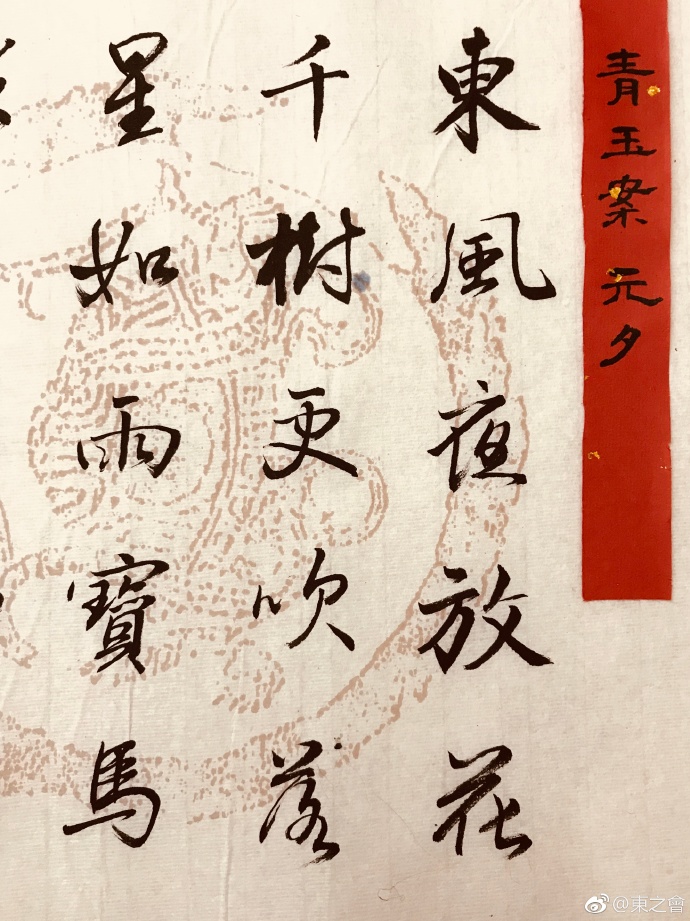 青玉案 元夕
東風夜放花
千樹更吹落
星如雨寶馬
@東之會